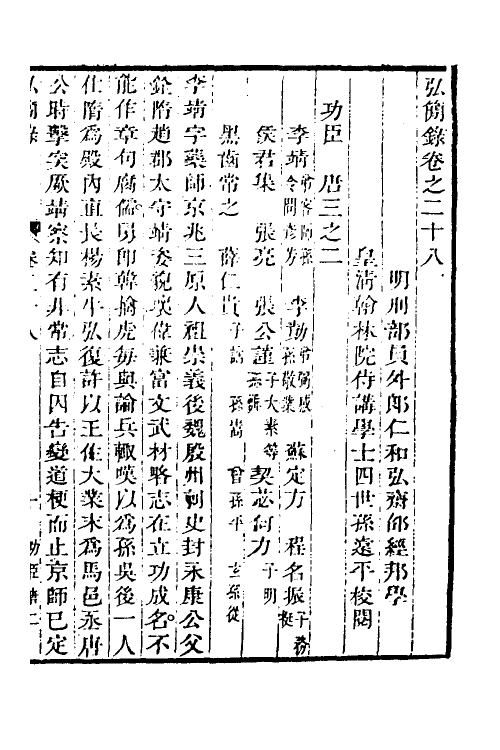 弘簡錄卷之二十八
明刑部員外郎仁和弘齋邵經邦學
皇清翰林院侍講學士四世孫遠平校閱
功臣　唐三之二
李靖 弟客師孫令問彥芳　李勣 弟弼感孫敬業　蘇定方　程名振 子務挺
侯君集　張亮　張公謹 子大素等孫　契苾何力 子明
黑齒常之　薛仁貴 子訥　孫嵩　曾孫平　玄孫從
李靖字藥師京兆三原人祖崇義後魏殷州刺史封永康公父
銓隋趙郡太守靖委貌瑰偉兼富文武材略志在立功成名不
能作章句腐儒舅即韓擒虎每與論兵輒嘆以為孫吳後一人
仕隋為殿內直長楊素牛弘復許以王佐大業末為馬邑丞唐
公時擊突厥靖察知有非常志自囚告變道梗而止京師已定
弘簡錄　卷二十八　一　功臣唐二